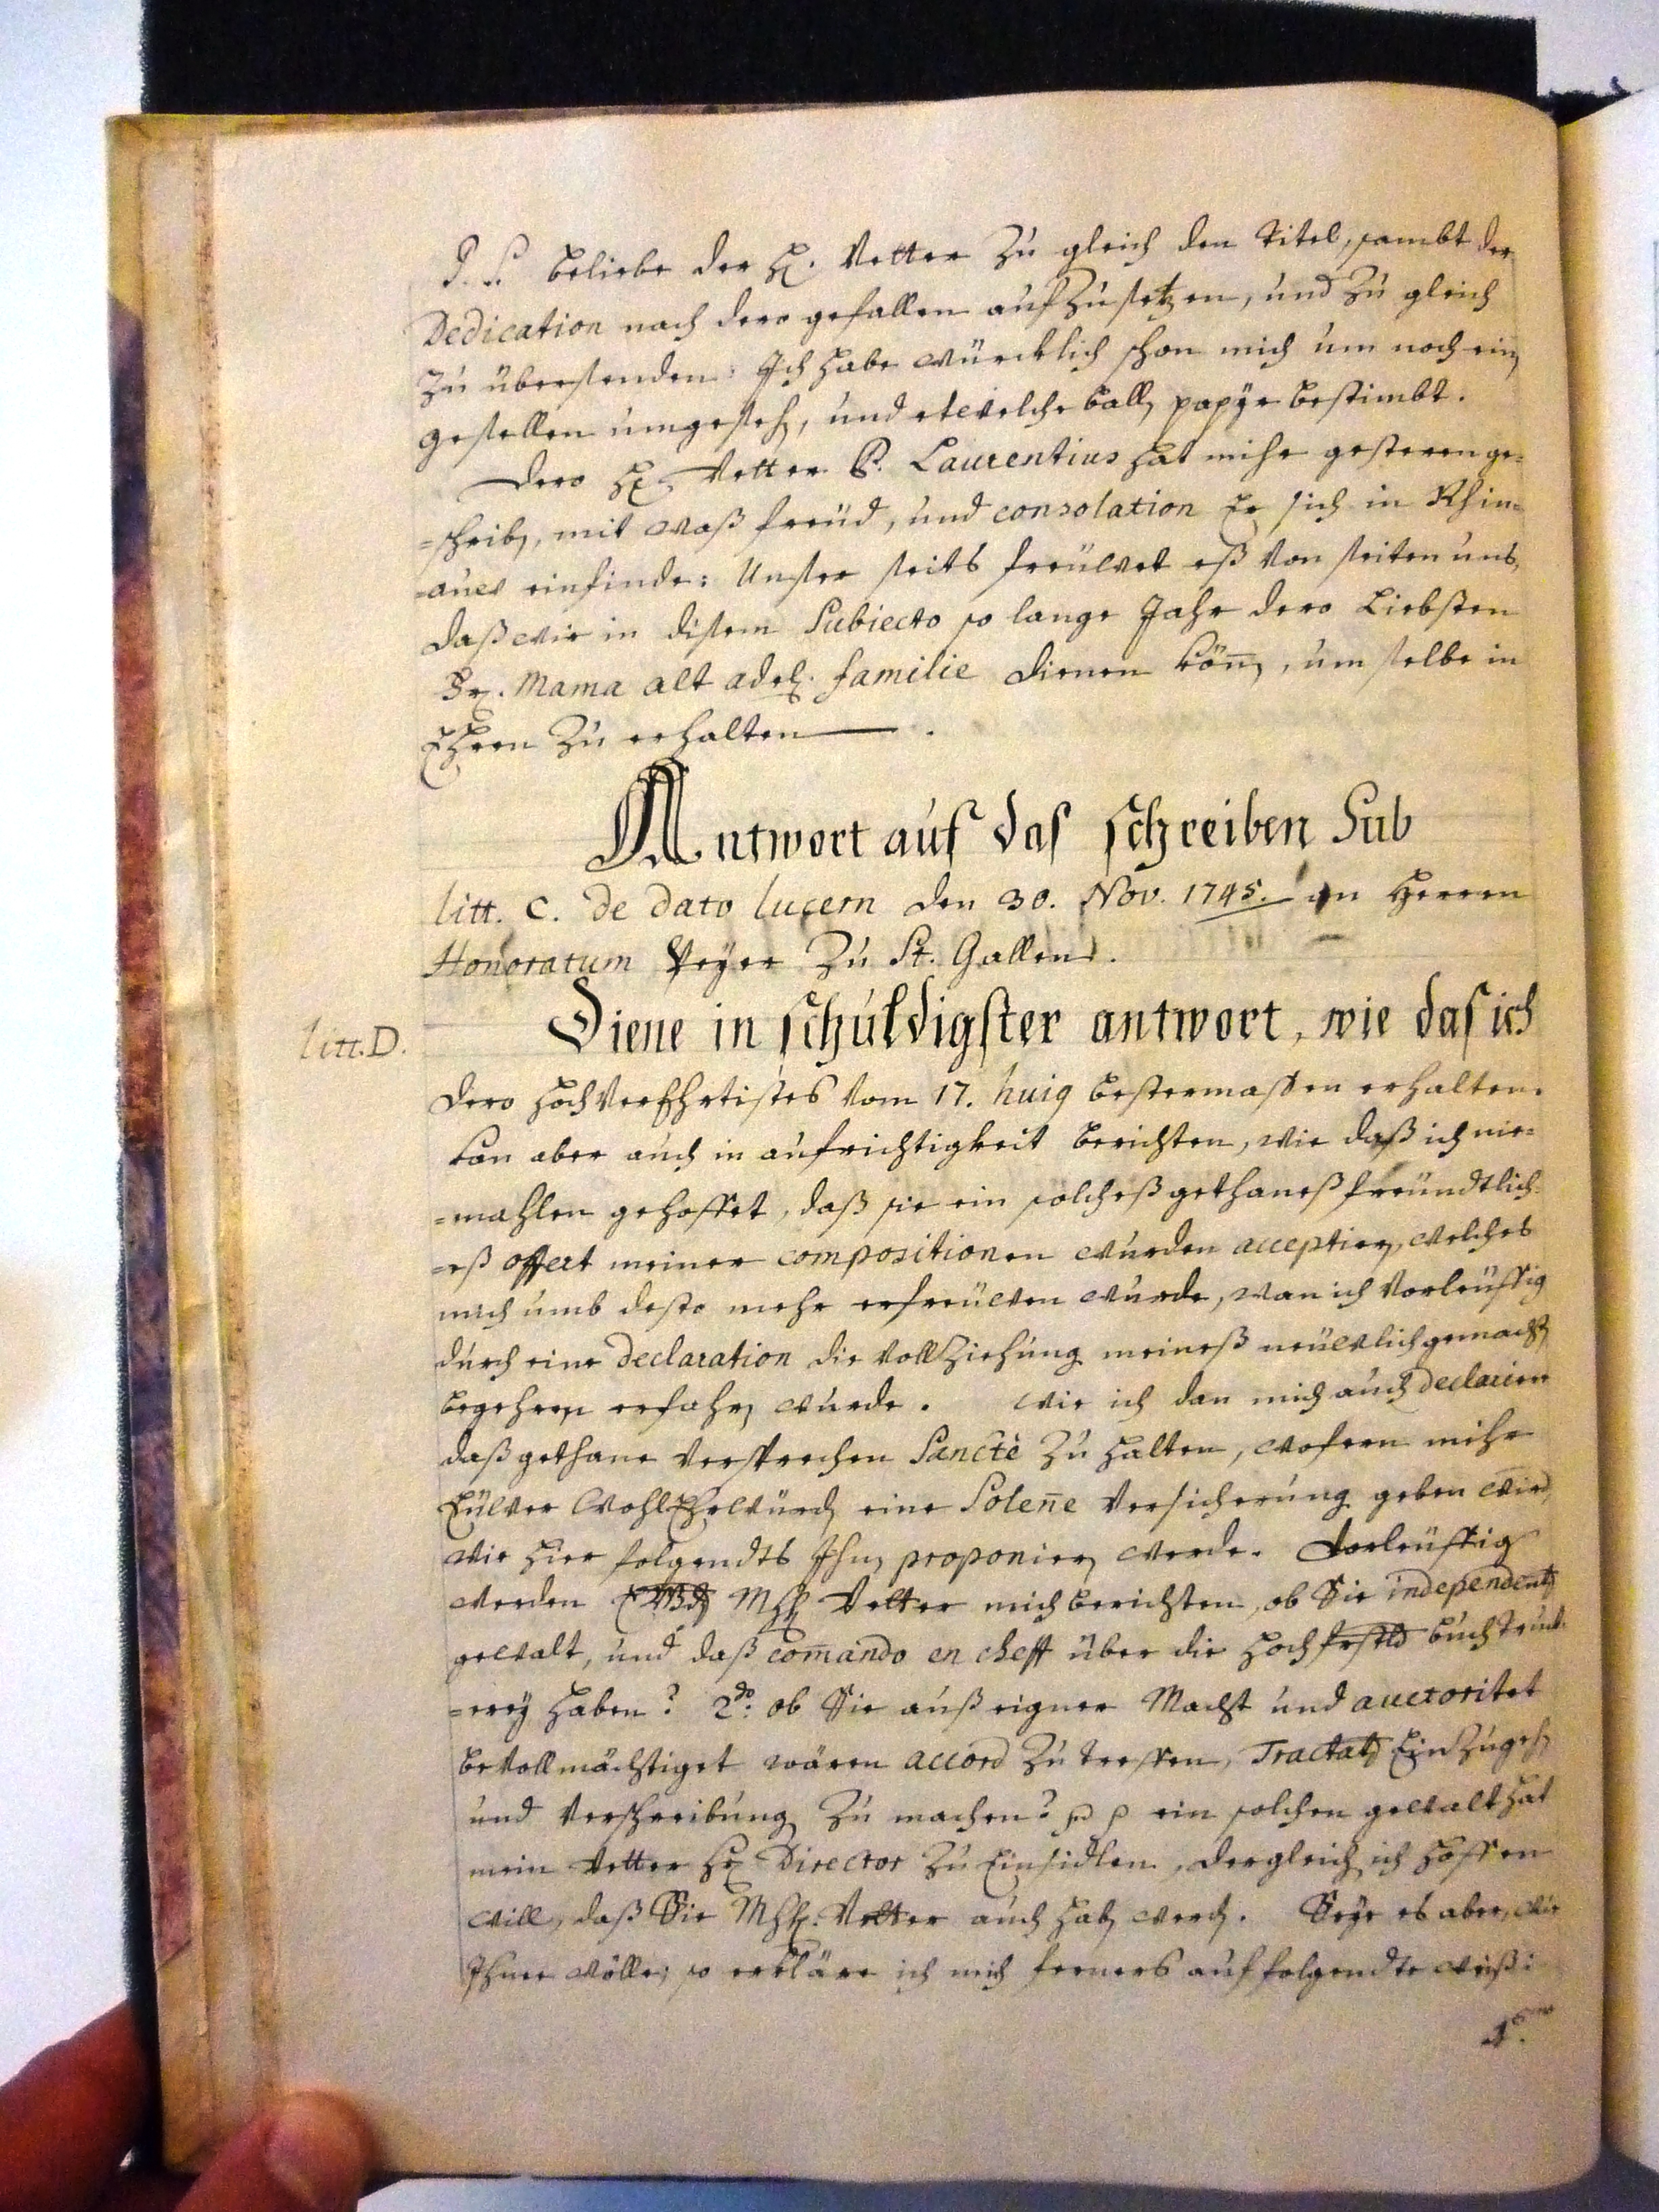 P. S. beliebe der H. Vetter zu gleich den Titel, sambt der
Dedication nach dero gefallen aufzusetzen, und zu gleich
zu übersenden: Ich habe würcklich schon mich um noch ein
gesellen umgeseh, und etwelche ball papÿr bestimbt.
Dero H. Vetter P. Laurentius hat mihr gesteren ge=
=schrib, mit waß freüd, und consolation Er sich in Rhin=
=auw einfinde: Unser seits freüwet eß von seiten uns,
daß wir in disem Subiecto so lange Jahr dero Liebsten
Fr. Mama alt adel. familie dienen könn, um selbe in
Ehren zu erhalten.
Antwort auf das schreiben Sub
litt. C. de dato lucern den 30. Nov. 1745. an Herren
Honoratum Peÿer zu St. Gallen.
litt. D.
Diene in schuldigster antwort, wie das ich
dero hochverEhrtistes vom 17. huig bestermassen erhalten.
kan aber auch in aufrichtigkeit berichten, wie daß ich nie=
=mahlen gehoffet, daß sie ein solcheß gethaneß freündtlich=
=eß offert meiner compositionen wurden acceptier, welches
mich umb desto mehr erfreüwen wurde, wan ich vorleüffig
durch eine declaration die vollziehung meineß neüwlich gemacht
begehren erfahr wurde. wie ich dan mich auch declarire
daß gethane versprechen Sanctè zu halten, wofern mihr
Eüwer WohlEhrwürd eine Solene versicherung geben wird,
wie hier folgendts Ihn proponier werde. Vorleüffig
werden MhH Vetter mich berichten, ob Sie independent
gewalt, und daß comando en cheff über die hochfrstld buchtruck=
=ereÿ haben? 2do: ob Sie auß eigner Macht und auctoritet
bevollmächtiget wären accord zu treffen, Tractat Einzugeh
und verschreibung zu machen? ein solchen gewalt hat
mein Vetter Hr Director zu Einsidlen, dergleich ich hoffen
will, daß Sie MhH. Vetter auch hab werd. Seÿe es aber, wie
Ihme wölle; so erkläre ich mich ferners auf folgendte weiß:
1mo